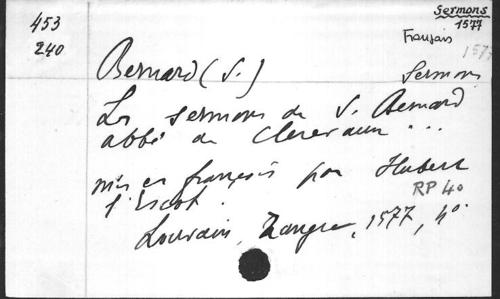 453
240
Sermons
1577
Français
1577
Bernard (S.)
Sermons
Les sermons de S. Bernard
abbé de Clerevaux ...
mis en français par Hubert
l'Escot.
RP 40
Louvain, Zangre, 1577, 4°.